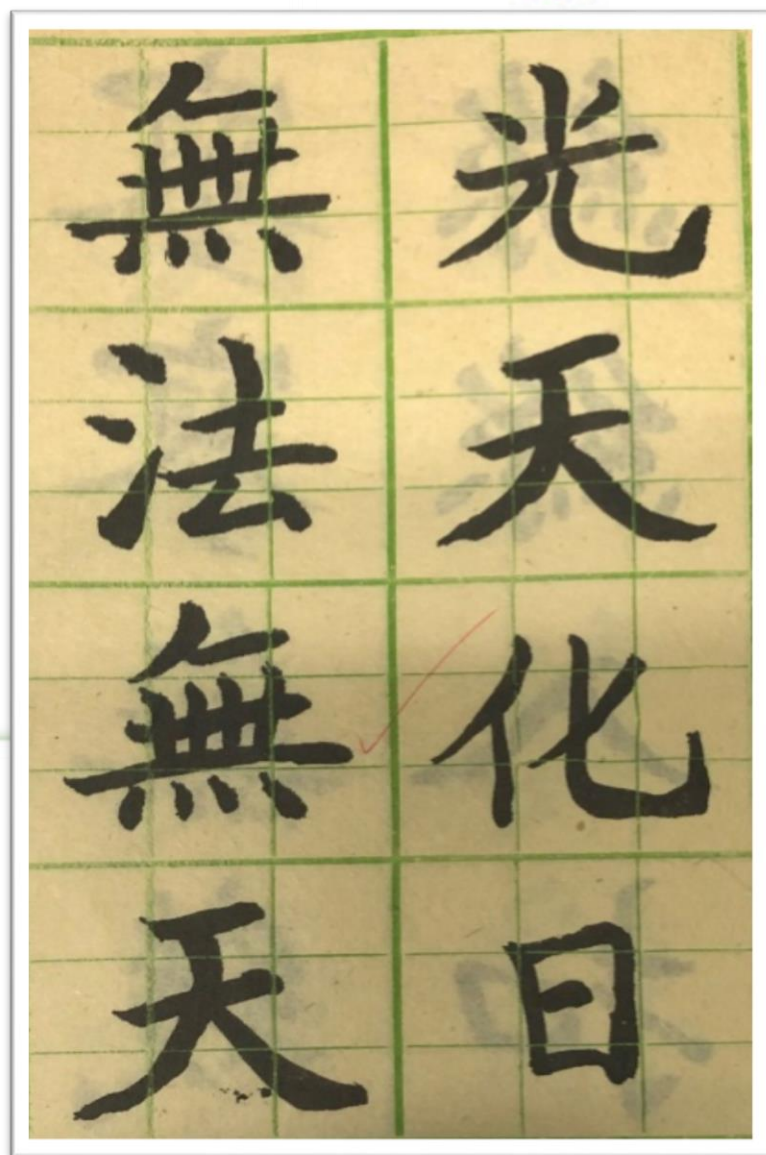 光天化日
無法無天